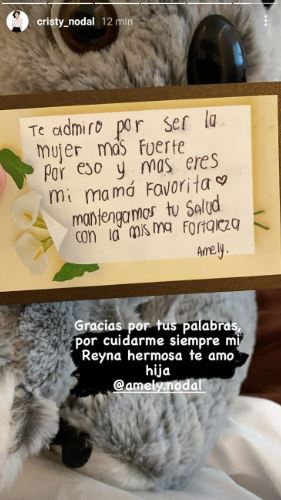 cristy_nodal 12 min
Te admiro por ser la
mujer más fuerte
Por eso y mas eres
mi mamá Favorita ♡
mantengamos tu salud
con la misma Fortaleza
Amely.
Gracias por tus palabras,
por cuidarme siempre mi
Reyna hermosa te amo
hija
@amely.nodal